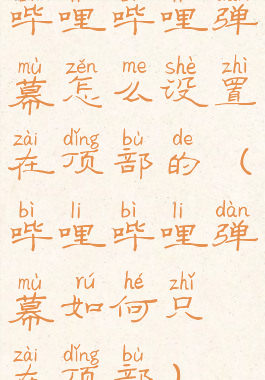 哔哩哔哩弹
mù zěn me shè zhì
幕怎么设置
zài dǐng bù de
在顶部的（
bì li bì li dàn
哔哩哔哩弹
mù rú hé zhǐ
幕如何只
zài dǐng bù
在顶部）